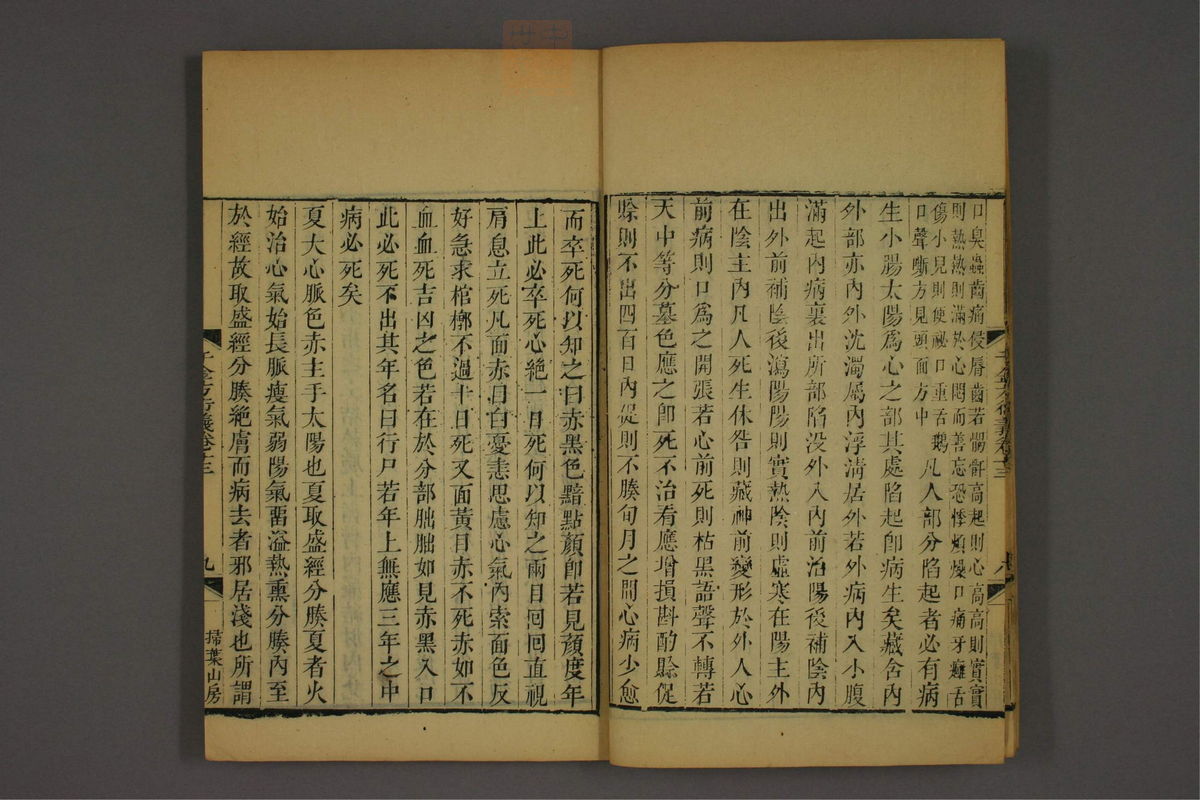 口臭蟲齒痛侵唇齒若髃骬高起則心高高則實實
則熱熱則滿於心悶而善忘恐悸煩燥口痛牙癰舌
傷小兒則便祕口重舌鵝
口聲嘶方見頭面方中
凡人部分陷起者必有病
生小腸太陽為心之部其處陷起即病生矣藏含內
外部亦內外沈濁屬內浮清居外若外病內入小腹
滿起內病裏出所部陷沒外入內前治陽後補陰內
出外前補陰後瀉陽陽則實熱陰則虛寒在陽主外
在陰主內凡人死生休咎則藏神前變形於外人心
前病則口為之開張若心前死則枯黑語聲不轉若
天中等分墓色應之即死不治看應增損斟酌賒促
賒則不出四百日內促則不腠旬月之間心病少愈
千金方衍義卷十三
八
而卒死何以知之曰赤黑色黯點顏即若見顏度年
上此必卒死心絕一日死何以知之兩目回回直視
肩息立死凡面赤目白憂恚思慮心氣內索面色反
好急求棺槨不過十日死又面黃目赤不死赤如不
血血死吉凶之色若在於分部朏朏如見赤黑入口
此必死不出其年名曰行尸若年上無應三年之中
病必死矣
夏大心脈色赤主手太陽也夏取盛經分腠夏者火
始治心氣始長脈瘦氣弱陽氣畱溢熱熏分腠內至
於經故取盛經分腠絕膚而病去者邪居淺也所謂
千金方衍義卷十三
九
掃葉山房